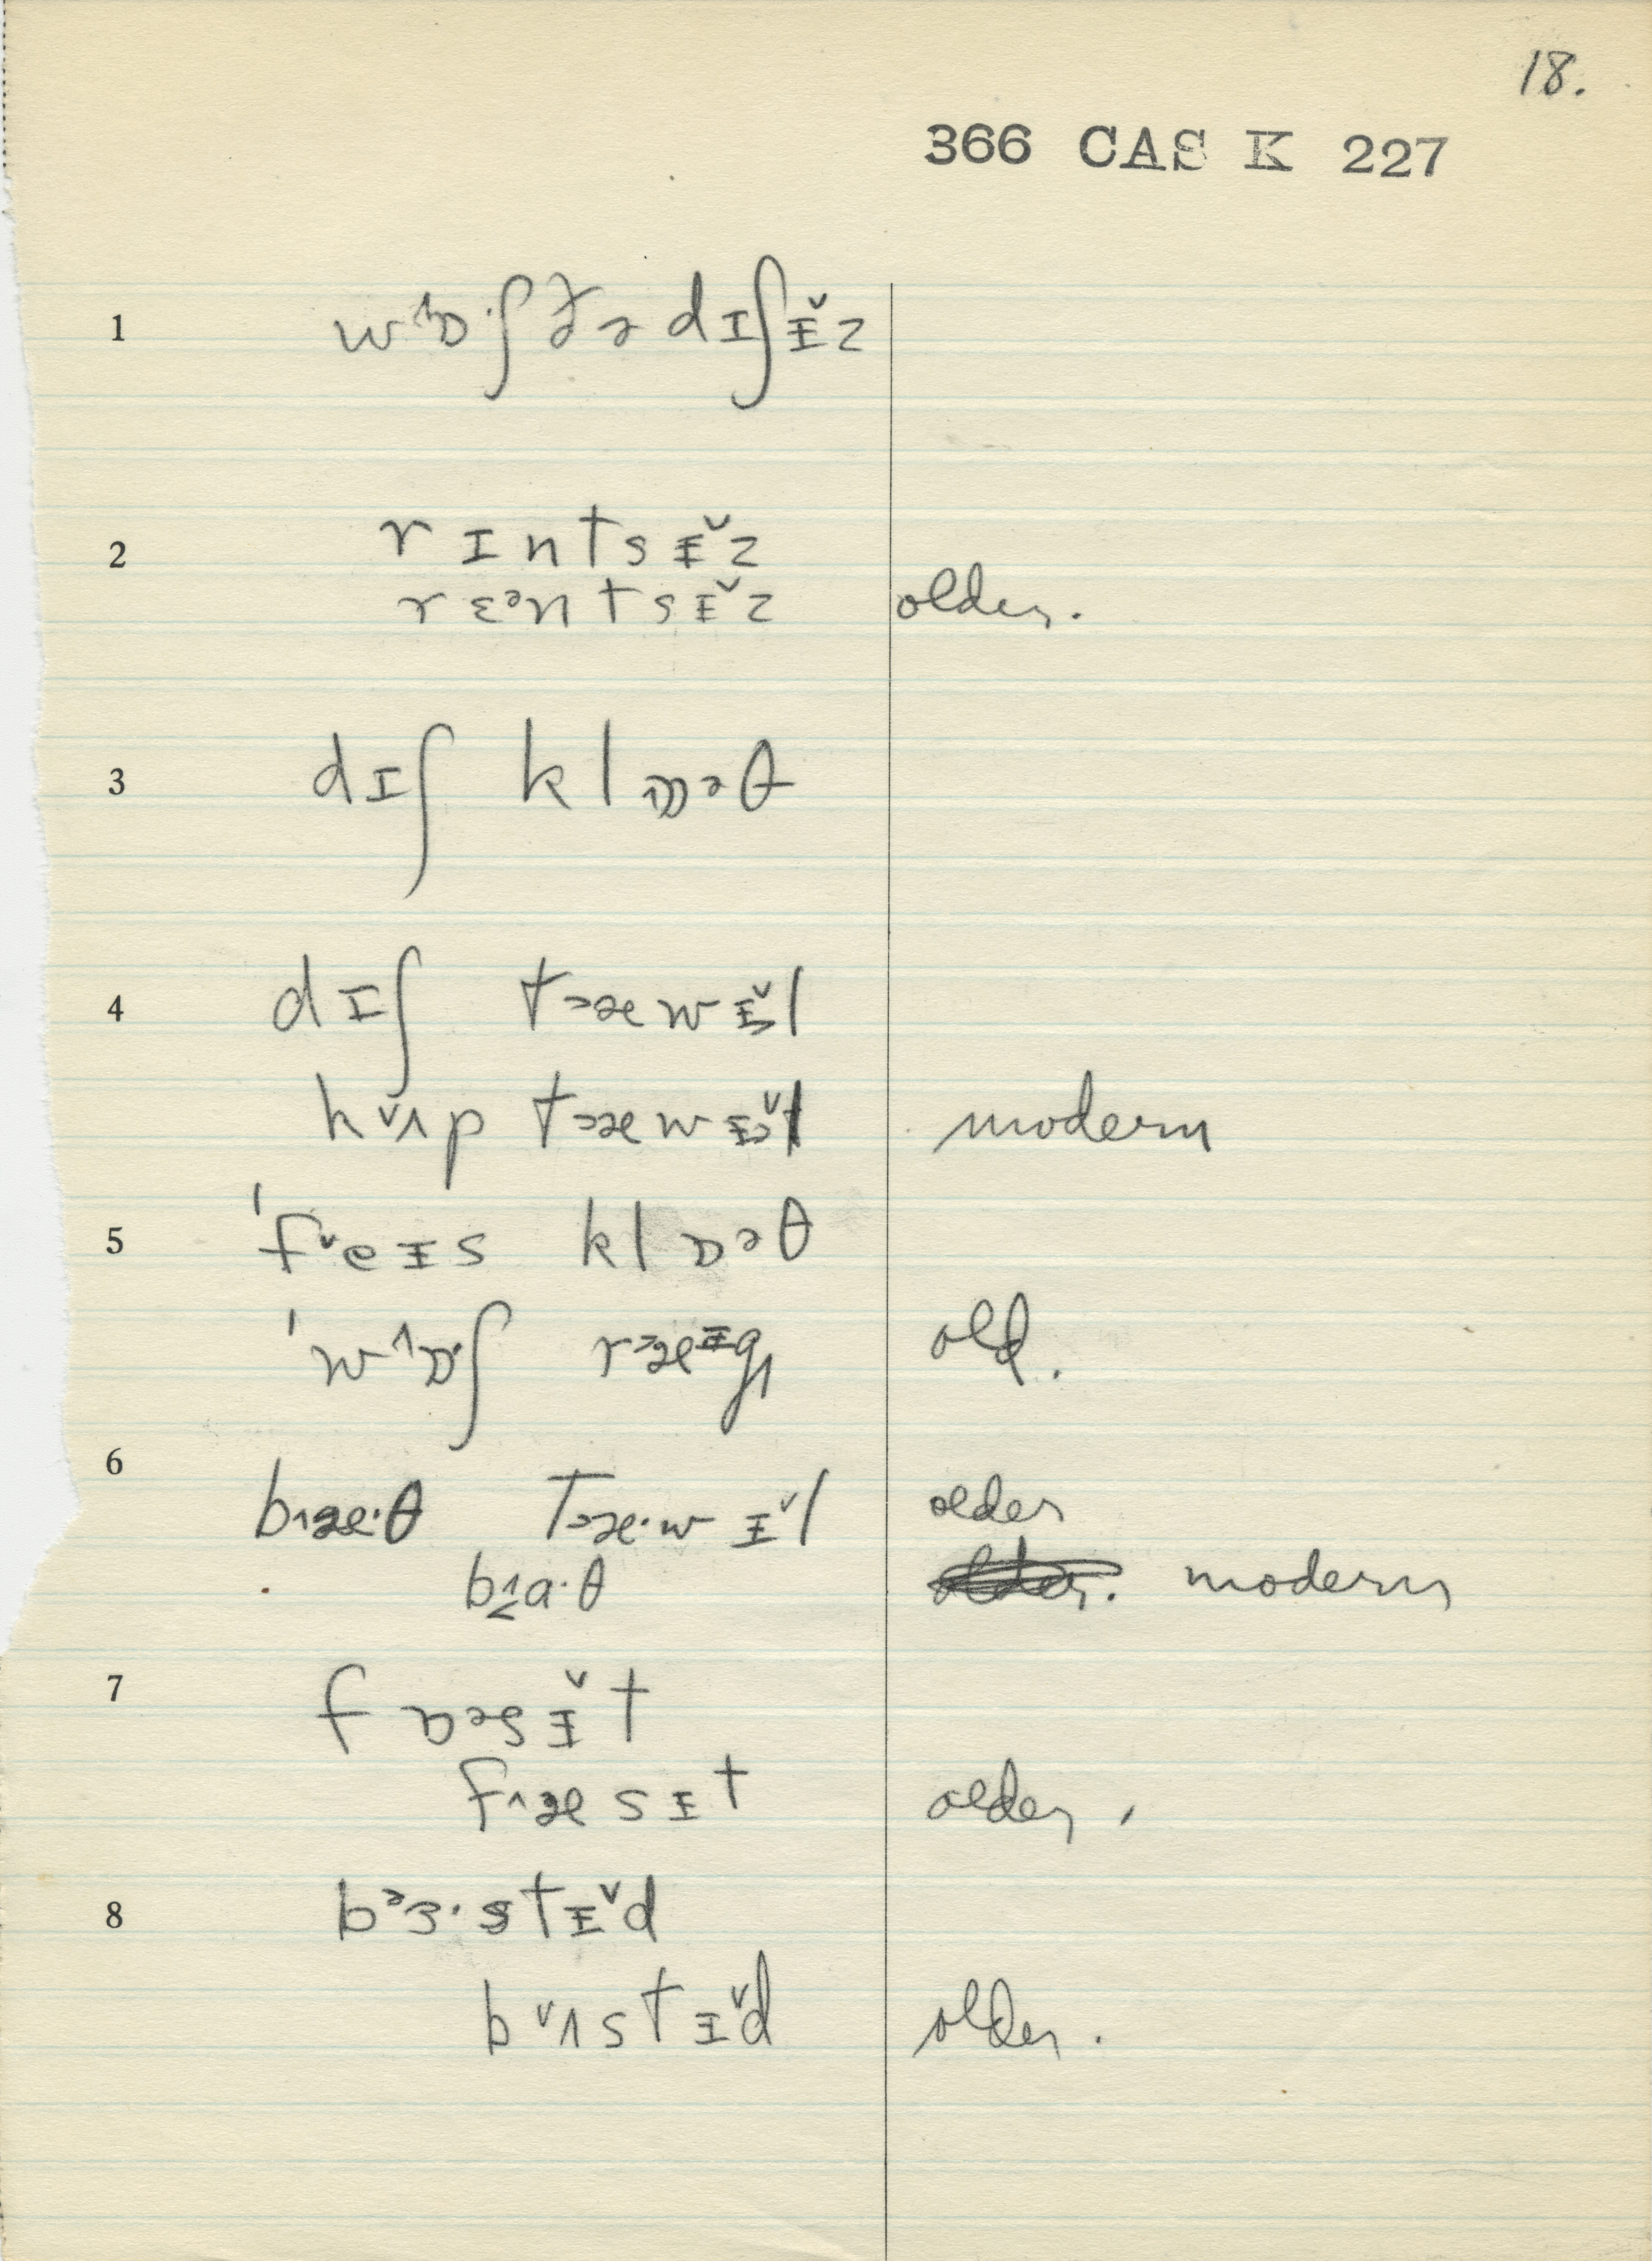 18.
366 CAS K 227
1 wɒ·ʃ ðə dɪʃɪ̵̌z
2 rɪntsɪ̵̌z
rɛᵊntsɪ̵̌z older.
3 dɪʃ klɒəθ
4 dɪʃ tæwɪ̵̌l
hʌ̌p tæwɪ̵̌l modern
5 ˈfeɪ̵s klɒəθ
ˈwɒ·ʃ ræɪ̵g old.
6
bæ·θ tæ·wɪ̵̌l older
ba·θ modern
7 fɒəsɪ̵̌t
fæsɪ̵t older,
8 bᵊɜ·stɪ̵̌d
bʌ̌stɪ̵̌d older.